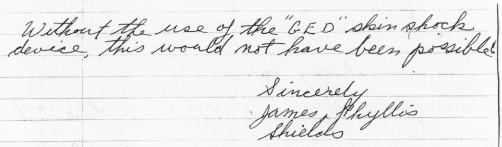 Without the use of the "GED" skin shock
device, this would not have been possible!
Sincerely
James, Phyllis
Shields